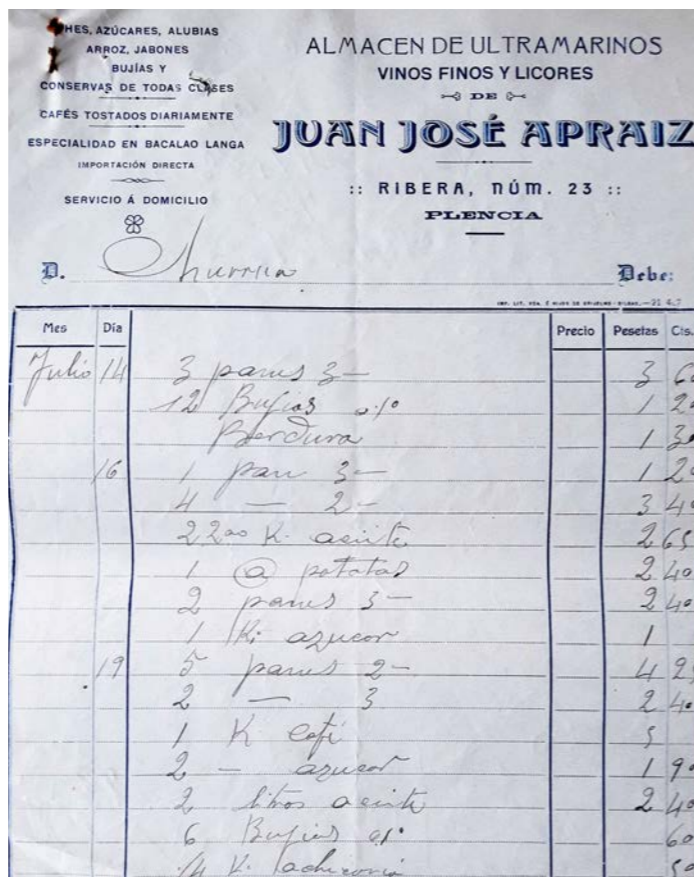 HES, AZÚCARES, ALUBIAS
ARROZ, JABONES
BUJÍAS Y
CONSERVAS DE TODAS CLASES
CAFÉS TOSTADOS DIARIAMENTE
ESPECIALIDAD EN BACALAO LANGA
IMPORTACIÓN DIRECTA
SERVICIO Á DOMICILIO
ALMACEN DE ULTRAMARINOS
VINOS FINOS Y LICORES
DE
JUAN JOSÉ APRAIZ
:: RIBERA, NÚM. 23 ::
PLENCIA
D. Churruca Debe:
Mes Día Precio Pesetas Cts.
Julio 14 3 panes 3— 3 6
12 Bujias 0.10 1 20
Berdura 1 30
16 1 pan 3— 1 20
4 — 2— 3 40
2 200 K. aceite 2 65
1 @ patatas 2 40
2 panes 3— 2 40
1 K. azucar 1
19 5 panes 2— 4 25
2 — 3 2 40
1 K Café 5
2 — azucar 1 90
2 litros aceite 2 40
6 Bujias 60
K. achicoria 50